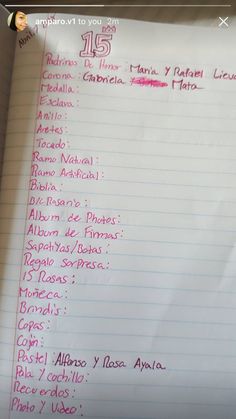 amparo.v1 to you 2m
15
Padrinos De Honor: Maria y Rafael
Corona: Gabriela y Mata
Medalla:
Esclava:
Anillo:
Aretes:
Tocado:
Ramo Natural:
Ramo Artificial:
Biblia:
B/c Rosario:
Album de Photos:
Album de Firmas:
Sapatiyas/Botas:
Regalo Sorpresa:
15 Rosas:
Muñeca:
Brindis:
Copas:
Cojin:
Pastel: Alfonso y Rosa Ayala
Pala y cochillo:
Recuerdos:
Photo y Video: